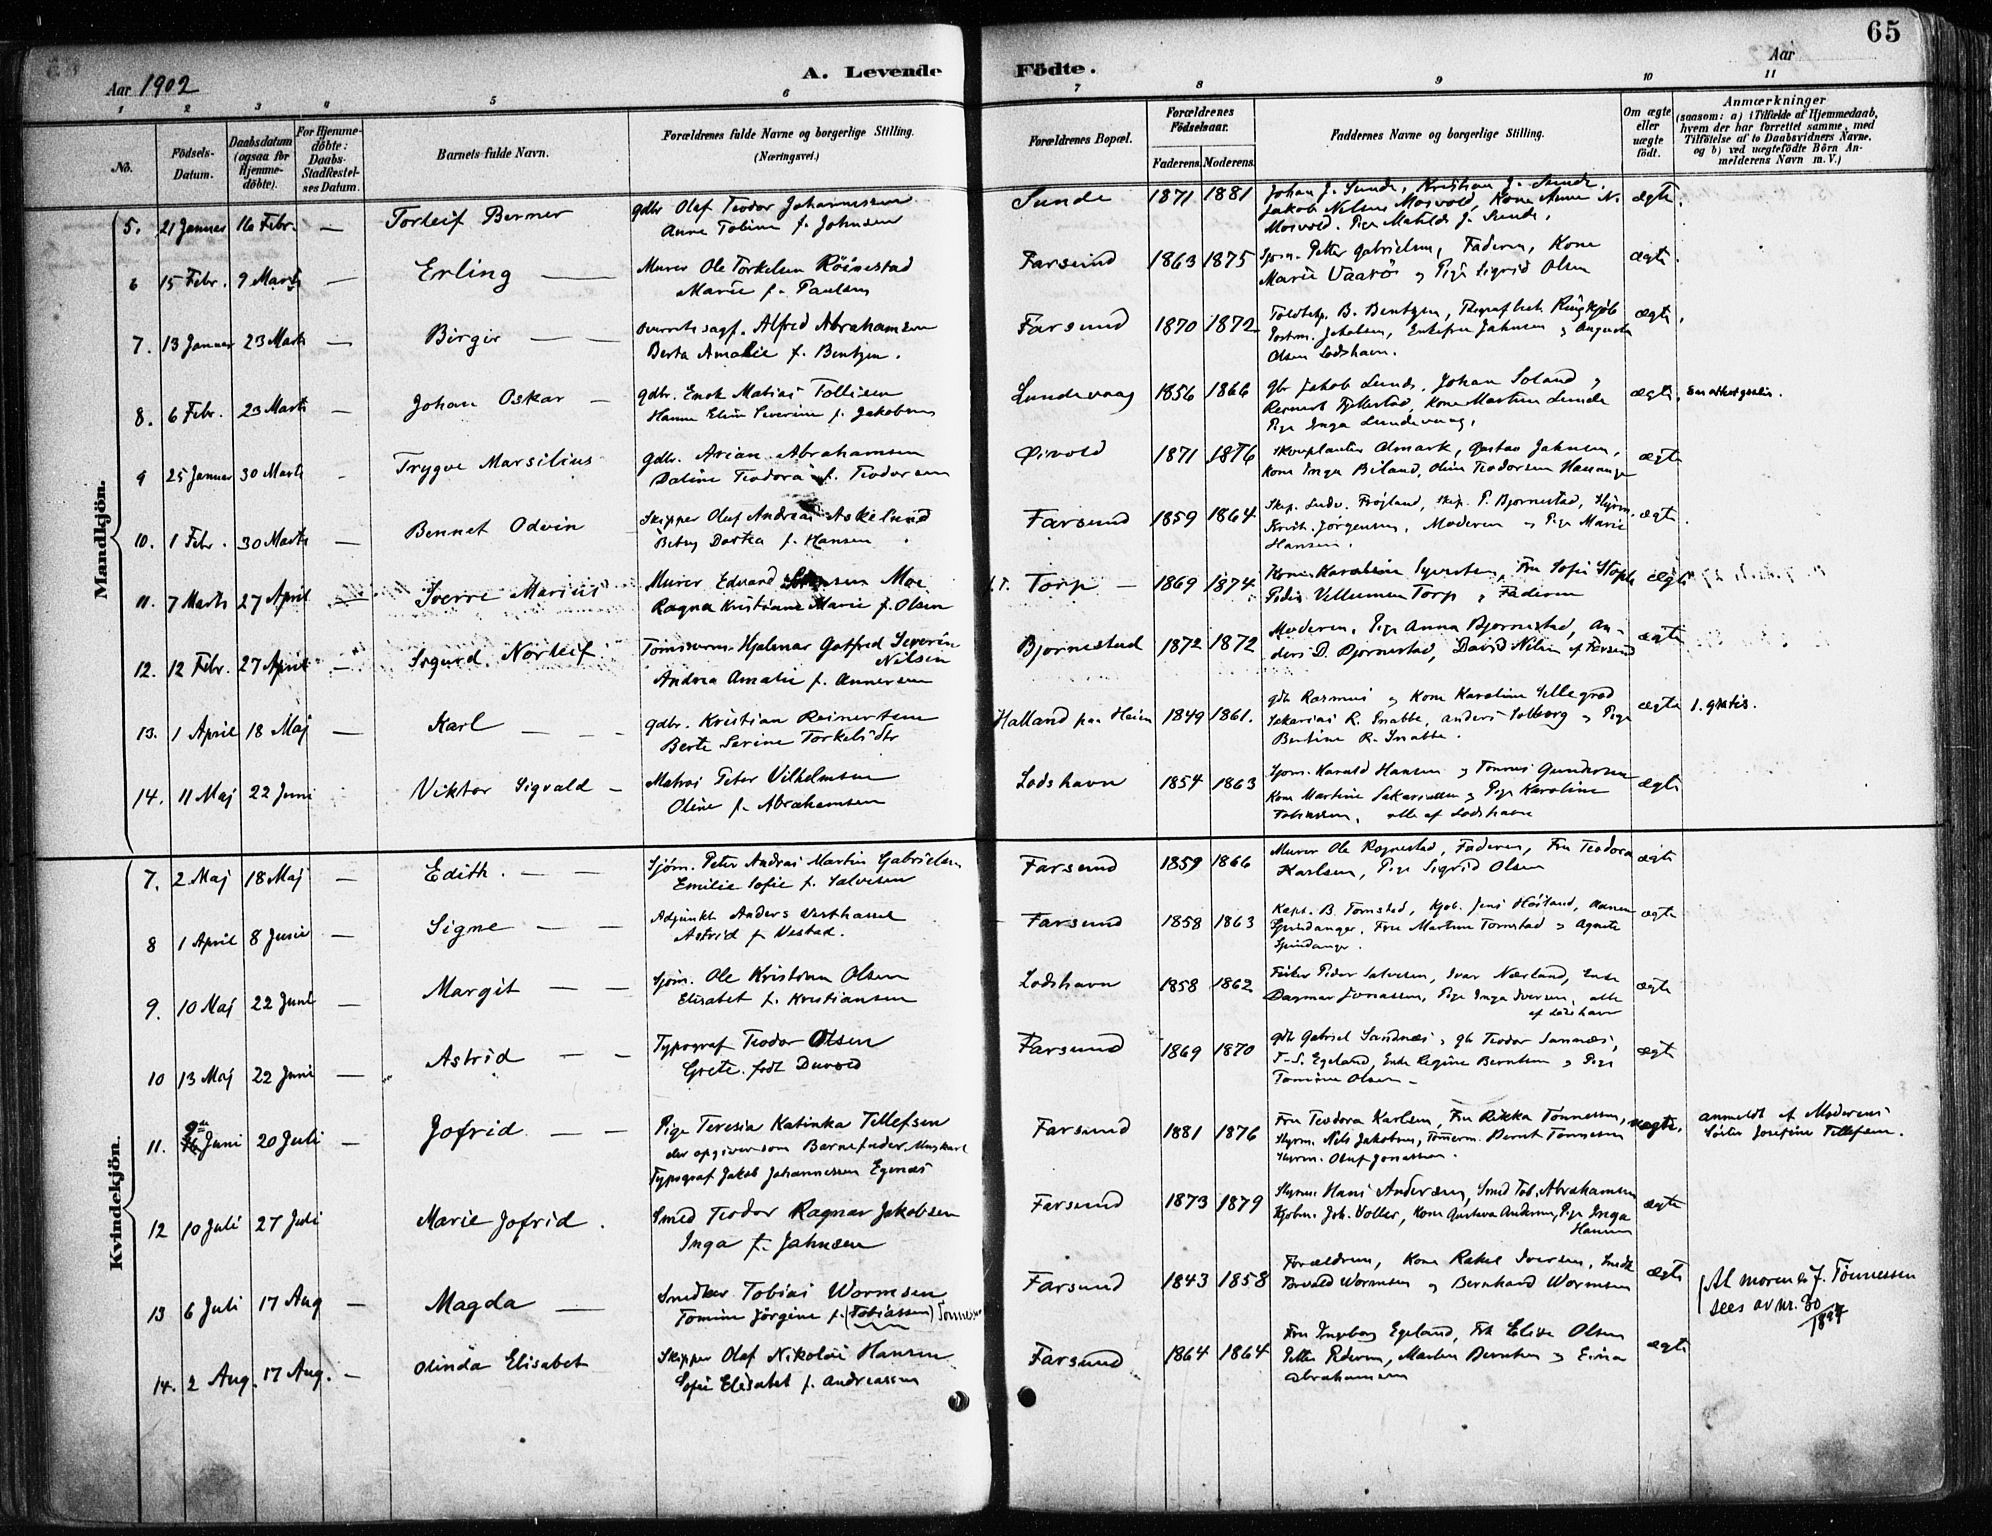 65
Aar 1902
A. Levende Födte.
Aar
1 2 3 4 5 6 7 8 9 10 11
No.
Födsels-Datum.
Daabsdatum (ogsaa for Hjemme-döbte).
For Hjemme-döbte: Daabs-Stadfæstel-ses Datum.
Barnets fulde Navn.
Forældrenes fulde Navne og borgerlige Stilling.
(Næringsvei.)
Forældrenes Bopæl.
Forældrenes Födselsaar.
Faderens. Moderens.
Faddernes Navne og borgerlige Stilling.
Om ægte eller uægte födt.
Anmærkninger
(saasom: a) i Tilfælde af Hjemmedaab, hvem der har forrettet samme, med Tilföielse af to Daabsvidners Navne, og b) ved uægtefödte Börn Anmelderens Navn m. V.)
Mandkjön.
5. 21 Januar 16 Febr. — Torleif Berner
gdbr Olaf Teodor Johannessen
Anne Tobine f. Johnsen
Sunde 1871 1881
Johan J. Sunde, Kristian J. Sunde,
Jakob Nilsen Mosvold, Kone Anne N.
Mosvold, Pige Matilde J. Sunde.
ægte.
6 15 Febr. 9 Marts — Erling —
Murer Ole Torkelsen Röinestad
Marie f. Paulsen
Farsund 1863 1875
Sjøm. Petter Gabrielsen, Faderen, Kone
Marie Vaarö og Pige Sigrid Olsen
ægte.
7. 13 Januar 23 Marts — Birger — —
Overretssagf. Alfred Abrahamsen
Berta Amalie f. Bentzen.
Farsund 1870 1872
B. Bentzen,
Jahnsen og Augusta
Olsen Lodshavn.
ægte.
8. 6 Febr. 23 Marts — Johan Oskar —
gdbr. Enok Matias Tollisen
Hanne Elise Severine f. Jakobsen
Lundevaag 1856 1866
gbr Jakob Lunde, Johan Loland og
Kone Martine Lunde
Pige Inga Lundevaag.
ægte.
9 25 Januar 30 Marts - Trygve Marsilius
gdbr. Arian Abrahamsen
Daline Teodora f. Teodorsen
Øivold 1871 1876
Skovplanter Almark, Gustav Jahnsen,
Kone Inga Biland, Oline Teodorsen
ægte
10. 1 Febr. 30 Marts — Bennet Odvin
Skipper Oluf Andreas Askelund
Betsy Dortea f. Hansen
Farsund 1859 1864
Skip. Ludv. Frøiland, Skip. P. Bjørnestad, Styrm.
Krist. Jörgensen, Moderen og Pige Marie
Hansen.
ægte.
11. 7 Marts 27 April — Sverre Marius
Murer Edvard Moe
Ragna Kristiane Marie f. Olsen
Torp — 1869 1874
Peder Villumsen Torp og Faderen
ægte
12. 12 Febr. 27 April — Sigurd Norleif
Tömmerm. Hjalmar Gotfred Severin
Nilsen
Andrea Amalie f. Annersen
Bjørnestad 1872 1872
Moderen, Pige Anna Bjørnestad, An-
ders D. Bjørnestad, David Nilsen af Farsund
ægte
13. 1 April 18 Maj — Karl — —
gdbr. Kristian Reinertsen
Berte Serine Torkelsdtr
Halland paa Heien 1849 1861.
gdb Rasmus og Kone Karoline Sellegrod
Sakarias R. Snabbe, Anders Solborg og Pige
Bertine R. Snabbe.
ægte 1. gratis.
14. 11 Maj 22 Juni Viktor Sigvald —
Matros Peter Vilhelmsen
Oline f. Abrahamsen
Lodshavn 1854 1863
Sjøm. Harald Hansen og Tönnes Gundersen
Kone Martine Sakariassen og Pige Karoline
Tobiassen, alle af Lodshavn
ægte
Kvindekjön.
7. 2 Maj 18 Maj — Edith. — —
Sjøm. Peter Andreas Martin Gabrielsen
Emilie Sofie f. Salvesen
Farsund 1859 1866
Murer Ole Røynestad, Faderen, Fru Teodora
Karlsen, Pige Sigrid Olsen
ægte
8 1 April 8 Juni — Signe — —
Adjunkt Anders Vesthassel
Astrid f. Vestad.
Farsund 1858 1863
Kapt. B. Tornstad, Kjøb. Jens Höiland,
Spindanger, Fru Martine Tornstad og Agnete
Spindanger.
ægte
9. 10 Maj 22 Juni — Margit — —
Sjøm. Ole Kristian Olsen
Elisabet f. Kristiansen
Lodshavn 1858 1862
Fisker Peder Salvesen, Ivar Nærland, Enke
Dagmar Jonassen, Pige Inga Iversen, alle
af Lodshavn
ægte
10 13 Maj 22 Juni — Astrid — —
Typograf Teodor Olsen
Grete født Duvold
Farsund 1869 1870
gdb Gabriel Sandnæs, gb Teodor Sannæs,
T. S. Egeland, Enke Regine Berntsen og Pige
Tomine Olsen —
ægte
11. 9de Juni 20 Juli — Jofrid — —
Pige Teresia Katinka Tellefsen
der opgiver som Barnefader Ungkarl
Typograf Jakob Johannessen Egenæs
Farsund 1881 1876
Fru Teodora Karlsen, Fru Rikka Tönnessen,
Styrm. Nils Jakobsen, Tömerm. Bernt Tönnessen
Styrm. Oluf Jonassen.
uægte.
anmeldt af Moderens
Søster Josefine Tellefsen.
12 10 Juli 27 Juli Marie Jofrid.
Smed Teodor Ragnar Jakobsen
Inga f. Jahnsen
Farsund 1873 1879
Styrm. Hans Andersen, Smed Tob. Abrahamsen
Kjøbm. Joh. Voller, Kone Gustava Andersen, Pige Inga
Hansen
ægte
13 6 Juli 17 Aug — Magda —
Smedker Tobias Wormsen
Tomine Jörgine f. (Tobiassen) Tönnessen
Farsund 1843 1858
Forældrene, Kone Rakel Iversen,
Wormsen og Bernhard Wormsen
ægte
(At moren er f. Tønnessen
sees av nr. 30
14. 2 Aug. 17 Aug. — Olinda Elisabet
Skipper Olaf Nikolai Hansen
Sofie Elisabet f. Andreassen
Farsund 1864 1864
Fru Ingeborg Egeland, Frk Elise Olsen
Petter Pedersen, Martin Berntsen og Eina
Abrahamsen
ægte